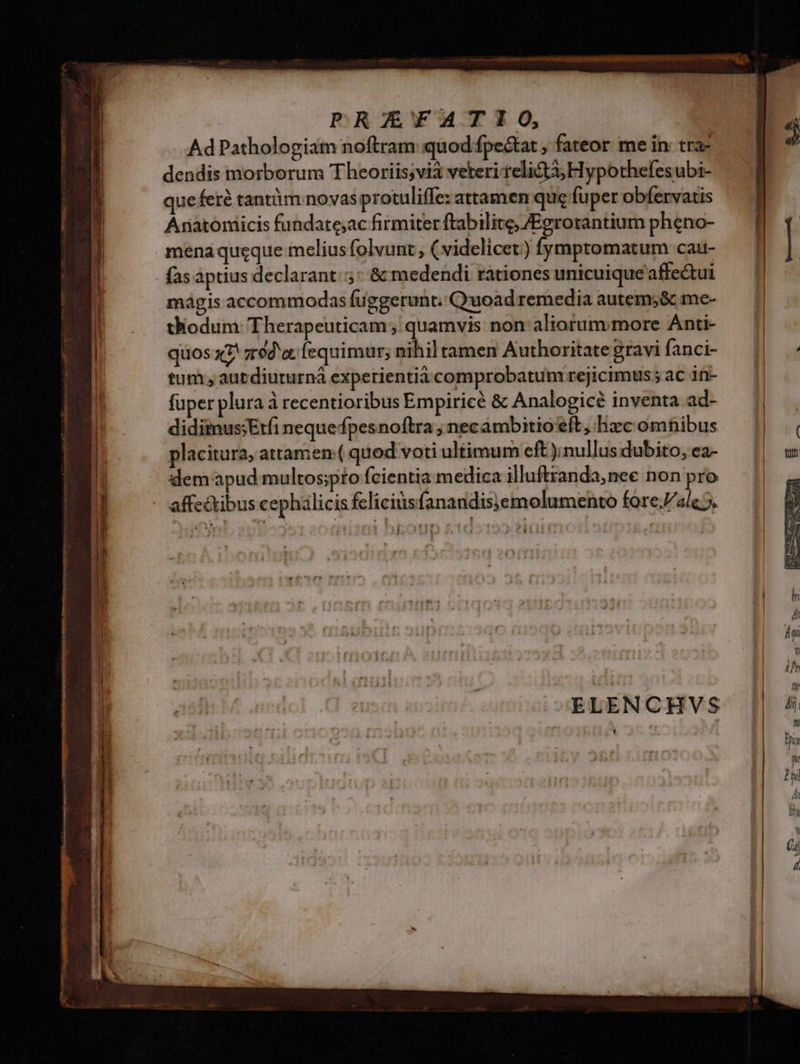 PRÆFATIO,
Ad Pathologiam noſtram quod ſpectat, fateor me in tra-
dendis morborum Theoriis, viâ veteri relictâ, Hypotheſes ubi-
que ferè tantùm novas protuliſſe: attamen quæ ſuper obſervatis
Anatomicis fundatæ, ac firmiter ſtabilitæ, Ægrotantium pheno-
mena quæque melius ſolvunt, (videlicet) ſymptomatum cau-
ſas aptius declarant; & medendi rationes unicuique affectui
magis accommodas ſuggerunt. Quoad remedia autem, & me-
thodum Therapeuticam, quamvis non aliorum more Anti-
quos κτ̀ πόδα ſequimur, nihil tamen Authoritate gravi ſanci-
tum, aut diuturnâ experientiâ comprobatum rejicimus; ac in-
ſuper plura à recentioribus Empiricè & Analogicè inventa ad-
didimus; Etſi neque ſpes noſtra, nec ambitio eſt, hæc omnibus
placitura, attamen (quod voti ultimum eſt) nullus dubito, ea-
dem apud multos, pro ſcientia medica illuſtranda, nec non pro
affectibus cephalicis feliciùs ſanandis, emolumento fore. Vale.
ELENCHVS